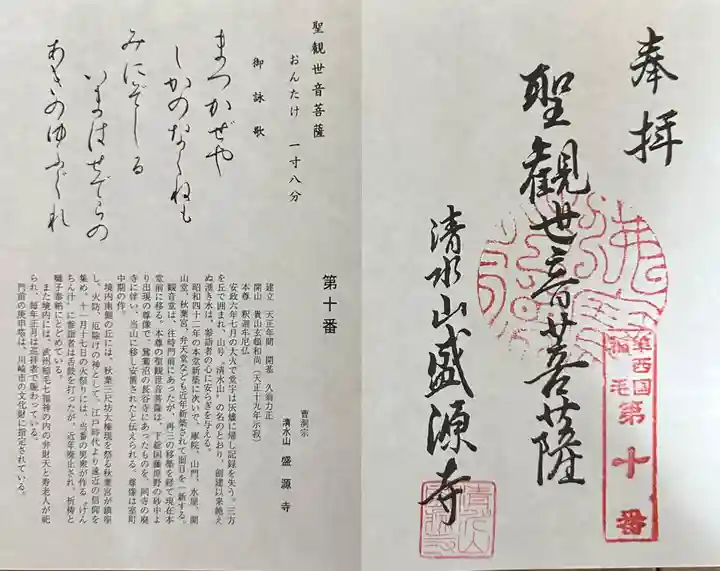 奉拝
聖観世音菩薩
清水山盛源寺
準西国
稲毛
第十番
聖観世音菩薩
おんたけ 一寸八分
御詠歌
まつかぜや
しかのなくねも
みにぞしる
いまはせでらの
あきのゆふぐれ
第十番
曹洞宗
清水山 盛源寺
建立 天正年間 開基 久翁力正
開山 貴山玄頓和尚(天正十九年示寂)
本尊 釈迦牟尼仏
安政六年七月の大火で堂宇は灰燼に帰し記録を失う。三方
を丘で囲まれ、山号〝清水山〟の名のとおり、創建以来絶え
ぬ湧き水は、参詣者の心に安らぎを与える。
昭和四十二年の本堂新築に次いで、庫院、山門、水屋、開
山堂、秋葉宮、弁天堂なども近年新築されて面目を一新する。
観音堂は、往時門前にあったが、再三の移築を経て現在本
堂前に移る。本尊の聖観世音菩薩は、下総国藤原野の砂中よ
り出現の尊像で、鷺沼の長谷寺にあったものを、同寺の廃
寺に伴い、当山に移し安置されたと伝えられる。尊像は室町
中期の作。
境内南側の丘には、秋葉三尺坊大権現を祭る秋葉宮が鎮座
し、火防、厄除けの神として、江戸時代より遠近の信仰を
集め、十一月十七日の火祭りには、当番の男衆が作る〝けん
ちん汁〟に参詣者は舌鼓を打ったが、近年廃止され、祈祷と
囃子奉納にとどめている。
また境内には、武州稲毛七福神の内の弁財天と寿老人が祀
られ、毎年正月は巡拝者で賑わっている。
門前の庚申塔は、川崎市の文化財に指定されている。